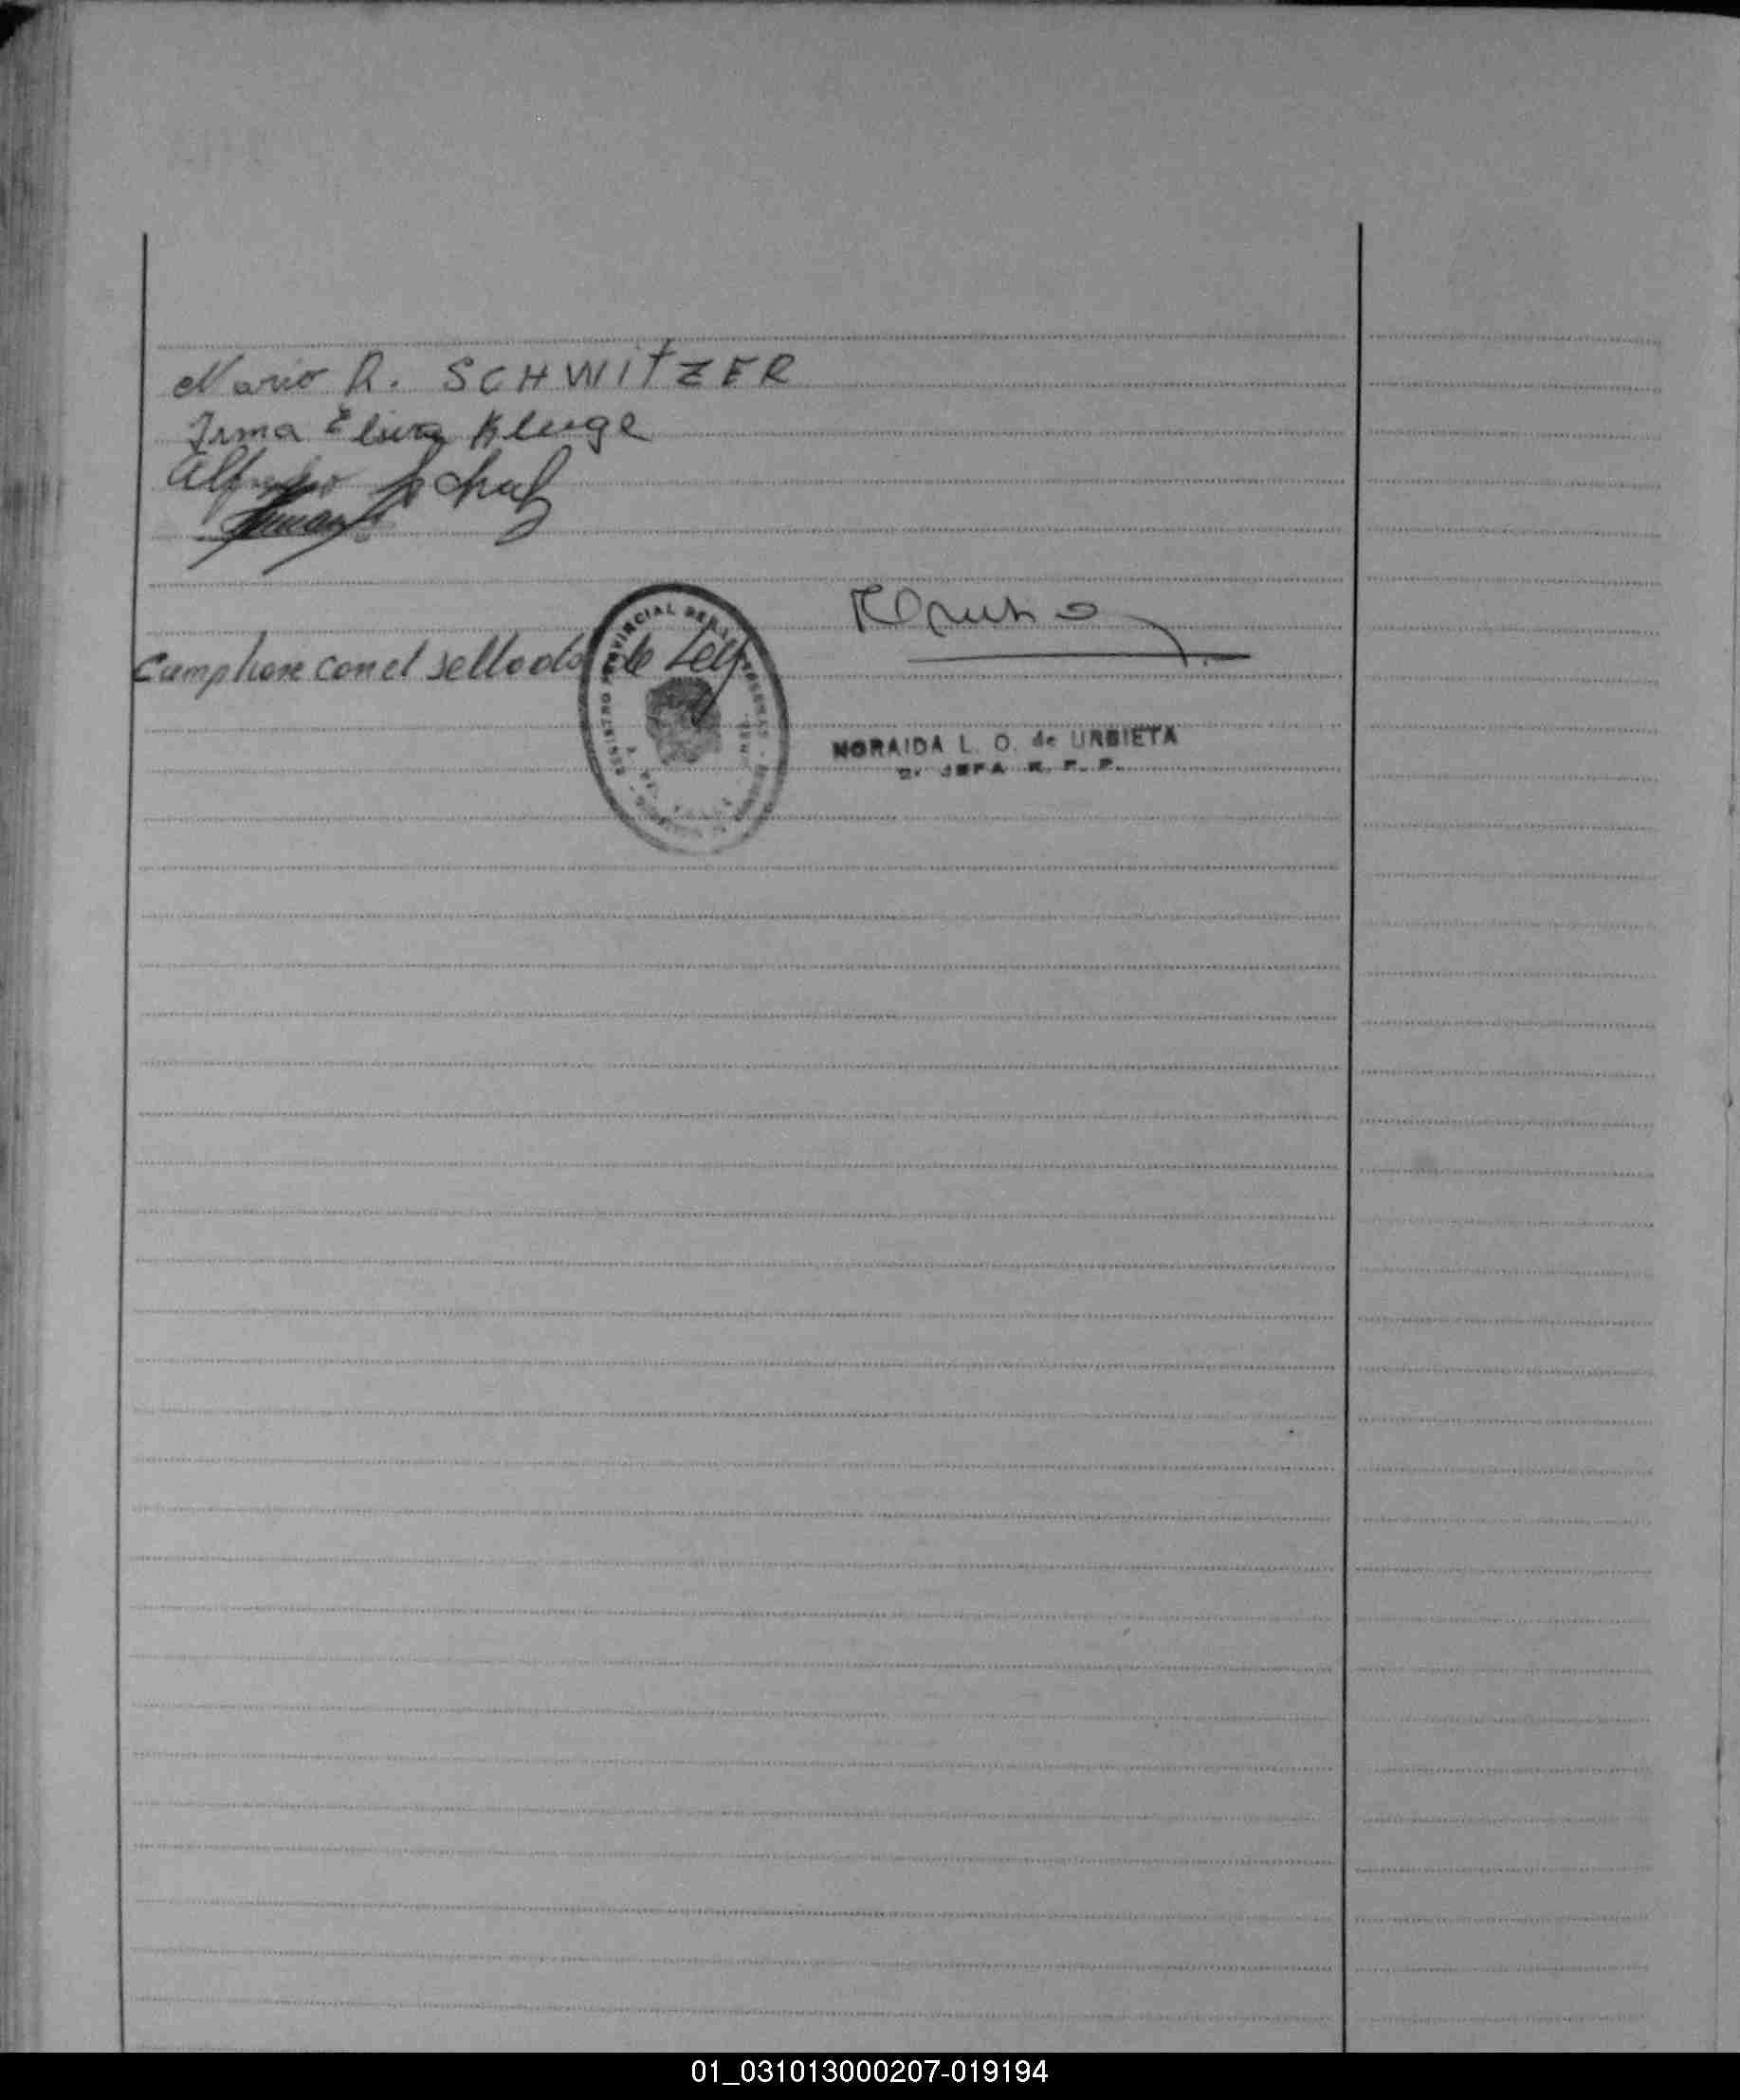 Mario R. SCHWITZER
Irma Elisa Kluge
Alfredo
Cumplione con el sellado de Ley
REGISTRO PROVINCIAL DE LAS PERSONAS
NORAIDA L. O. de URBIETA
2º JEFA R. P. P.
01_031013000207-019194